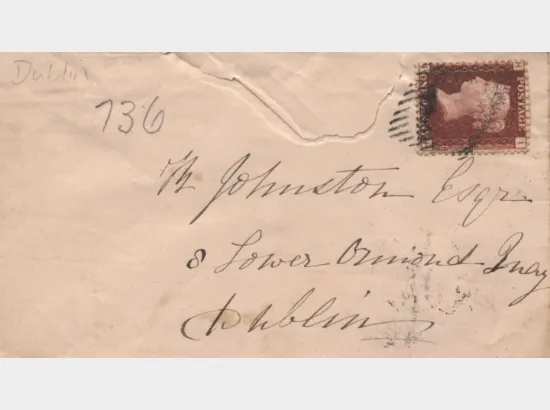 Dublin
736
POSTAGE
Johnston Esqr
8 Lower Ormond Quay
Dublin